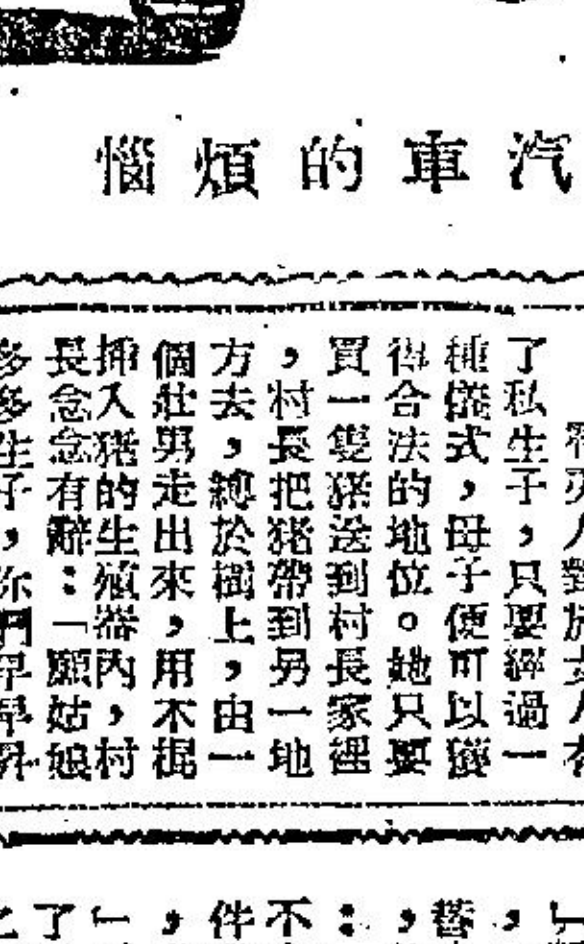 汽車的煩惱
對於女人有
了私生子，只要經過一
種儀式，母子便可以獲
得合法的地位。她只要
買一隻猪送到村長家裡
，村長把猪帶到另一地
方去，縛於樹上，由一
個壯男走出來，用木棍
插入猪的生殖器內，村
長念念有辭：「願姑娘
多多生子，你們早早昇
，替
：
不
件
，
了